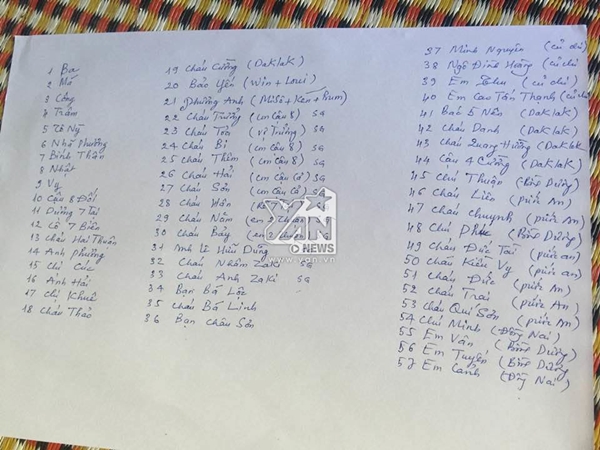 1 Ba
2 Má
3 Công
4 Trâm
5 Cô Ny
6 Nhã Phương
7 Bình Thận
8 Nhật
9 Vy
10 Cậu 8 Đối
11 Dượng 7 Tài
12 Cô 7 Biên
13 Cháu Hải Thuận
14 Anh Phương
15 Chị Cúc
16 Anh Hải
17 Chị Khuê
18 Cháu Thảo
19 Cháu Cường (Daklak)
20 Bảo Yến (Win + Loui)
21 Phương Anh (Misô + Ken + Bum)
22 Cháu Trường (cm Cậu 8) SG
23 Cháu Tỏa (vợ Trường) SG
24 Cháu Bi (cm Cậu 8) SG
25 Cháu Thêm (cm Cậu 8) SG
26 Cháu Hải (cm Cậu Cả) SG
27 Cháu Sơn (cm Cậu Cả) SG
28 Cháu Hân
29 Cháu Năm
30 Cháu Bảy
31 Anh Lê Hữu Dũng
32 Cháu Nhâm Zaki SG
33 Cháu Anh Zaki SG
34 Bạn Bá Lộc
35 Cháu Bá Linh
36 Bạn Châu Sơn
37 Minh Nguyên (củ chi)
38 Ngô Đình Hoàng (củ chi)
39 Em Thu (củ chi)
40 Em Cao Tấn Thạnh (củ chi)
41 Bác 5 Nên (Daklak)
42 Cháu Danh (Daklak)
43 Cháu Quang Hướng (Daklak)
44 Cậu 4 Cường (Daklak)
45 Chú Thuận (Bình Dương)
46 Cháu Liên (Phước An)
47 Cháu Chuynh (Phước An)
48 Chú Phúc (Bình Dương)
49 Cháu Đức Tài (phước an)
50 Cháu Kiều Vy (phước an)
51 Cháu Đức (Phước An)
52 Cháu Trai (Phước An)
53 Cháu Quí Sơn (phước An)
54 Chú Minh (Đồng Nai)
55 Em Vân (Bình Dương)
56 Em Tuyến (Bình Dương)
57 Em Cảnh (Đồng Nai)
YAN
NEWS
www.yan.vn